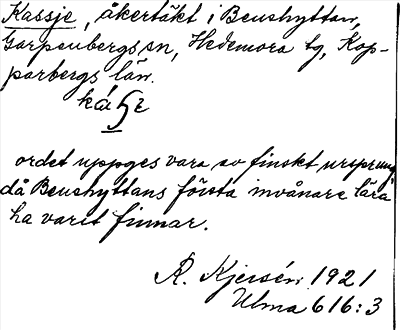 Kassje, åkertäkt i Beushyttan,
Garpenbergs sn, Hedemora tg, Kop-
parbergs län.
ordet uppges vara av finskt ursprung
då Beushyttans första invånare lära
ha varit finnar.
R. Kjersén. 1921
Ulma 616:3